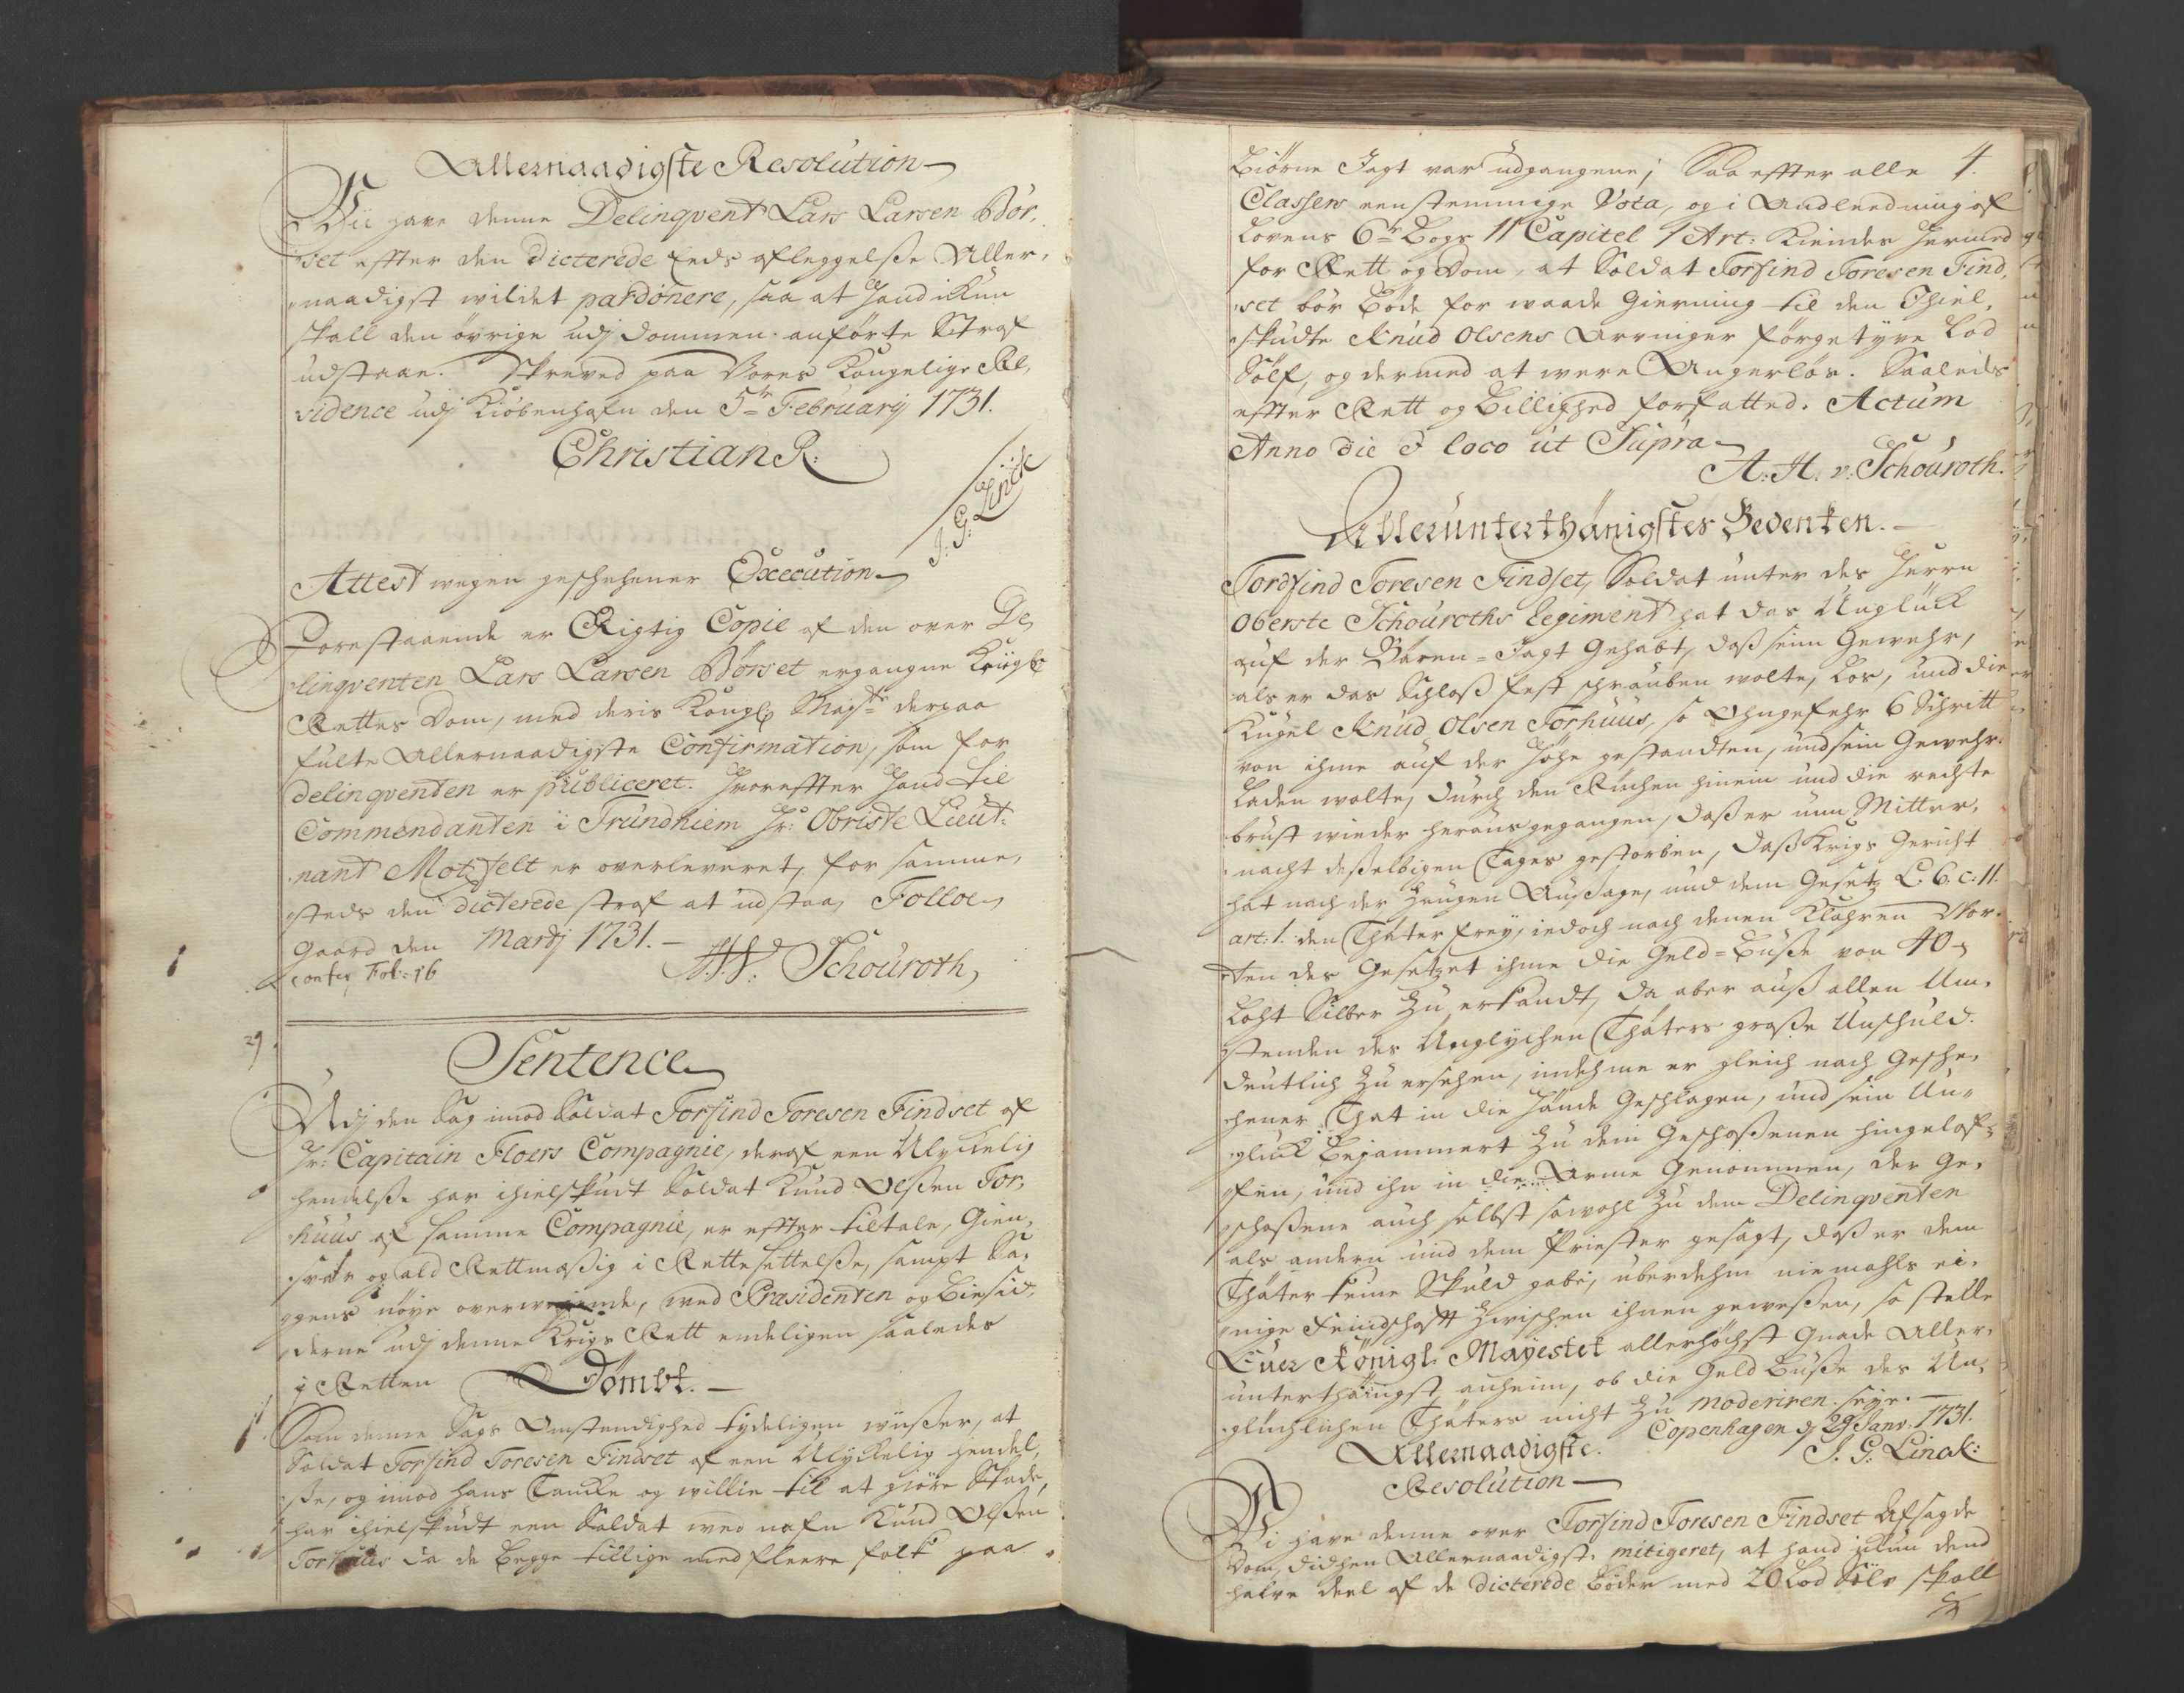 Allernaadigste Resolution
Wii have denne Delinqvent Lars Larsen Bör,
set efter den dicterede Eeds afleggelsse Aller,
naadigst wildet pardonere, saa at hand ikkun
skall den övrige udj dommen anförte Straf
udstaae. Skreved paa Vores Kongelige Re,
sidence udj Kiöbenhafn den 5te Februarij 1731.
Christian R.
J: G: Linck
Attest wegen geschehener Execution
Forestaaende er Rigtig Copie af den over De,
linqventen Lars Larsen Börset ergangne Krigs
Rettes Dom, med deris Kongl: Maysts derpaa
fulte Allernaadigste Confirmation, som for
delinqventen er publiceret. Hvorefter hand til
Commendanten i Trundhiem Hr: Obriste Lieut:
nant Motzfelt er overleveret, for samme,
steds den dicterede straf at udstaa, Folloe,
gaard den Martij 1731.
A: H: v: Schouroth,
confer Fol: 16
29
Sentence
Udj den Sag imod Soldat Torfind Toresen Findset af
Hr: Capitain Floers Compagnie, deraf een Ulyckelig
hendelsse har ihielskudt Soldat Knud Olssen Tor,
huus af samme Compagnie, er efter tiltale, Gien,
svar og ald Rettmæssig i Rettesettelsse, sampt Sa,
gens nöye overweiende, med Præsidenten og Biesid,
derne udj denne Krigs Rett endeligen saaledes
i Retten Dömbt.
Som denne Sags Omstendighed tydeligen wiisser, at
Soldat Torfind Toresen Findset af een Ulyckelig hendel,
sse, og imod hans Tancke og willie til at giöre Skade,
har ihielskudt een Soldat med nafn Knud Olssen
Torhuus da de begge tillige med fleere folk paa
4.
Biörne Jagt var udgangene; Saa efter alle
Classers eenstemmige Vota, og i Andleedning af
Lovens 6te Bogs 11 Capitel 1 Art: Kiendes hermed
for Rett og Dom, at Soldat Torfind Toresen Find,
set bör böde for waade Gierning til den Ihiel,
skudte Knud Olsens Arvinger förgetyve Lod
Sölf, og dermed at were Angerlös. Saaledes
efter Rett og Billighed forfatted. Actum
Anno die & loco ut Supra
A: H. v: Schouroth.
Allerunterthänigstes Bedenken.
Tordfind Toresen Findset, Soldat unter des Herrn
Oberste Schouroths Regiment hat das Unglück
auf der Bären=Jagt Gehabt, daß sein Gewehr,
als er das Schloß fest schrauben wolte, Los, und die
Kugel Knud Olsen Torhuus, so Ohngefehr 6 Schritt
von ihme auf der Höhe gestandten, und sein Gewehr
Laden wolte, durch den Rücken hinein und die rechte
brust wieder heraus gegangen, daß er um Mitter,
nacht desselbigen Tages gestorben, daß Krigs Gericht
hat nach der Zeugen Aussage, und dem Gesetz L: 6. c: 11.
art: 1. den Thäter frey, iedoch nach denen Klahren Wor,
ten des Gesetzes ihme die Geld=Busse von 40
Loht Silber Zu erkandt, da aber auß allen Um,
stenden des Unglychen Thäters grosse Unschuld.
deutlich Zu ersehen, indehme er gleich nach Gesche,
hener That in die Hände Geschlagen, und sein Un,
glück Bejammert Zu dem Geschossenen hingelof,
fen, und ihn in die Arme Genommen, der Ge,
schossene auch selbst sowohl Zu dem Delinqventen
als andern und dem Priester gesagt, daß er dem
Thäter keine Skuld gebe, überdehm niemahls ei,
nige Feindschaft Zwischen ihnen gewessen, so stelle
Euer Königl. Mayestet allerhöchst Gnade Aller,
unterthänigst anheim, ob die Geld Busse des Un,
glüchlichen Thäters nicht Zu moderiren seye.
Copenhagen d 29 Janv. 1731.
J. G: Linck:
Allernaadigste.
Resolution
Wi have denne over Torfind Toresen Findset Afsagde
Dom, didhen Allernaadigst. mitigeret, at hand ikkun dend
halve deel af de dicterede Böder med 20 Lod Sölv skall